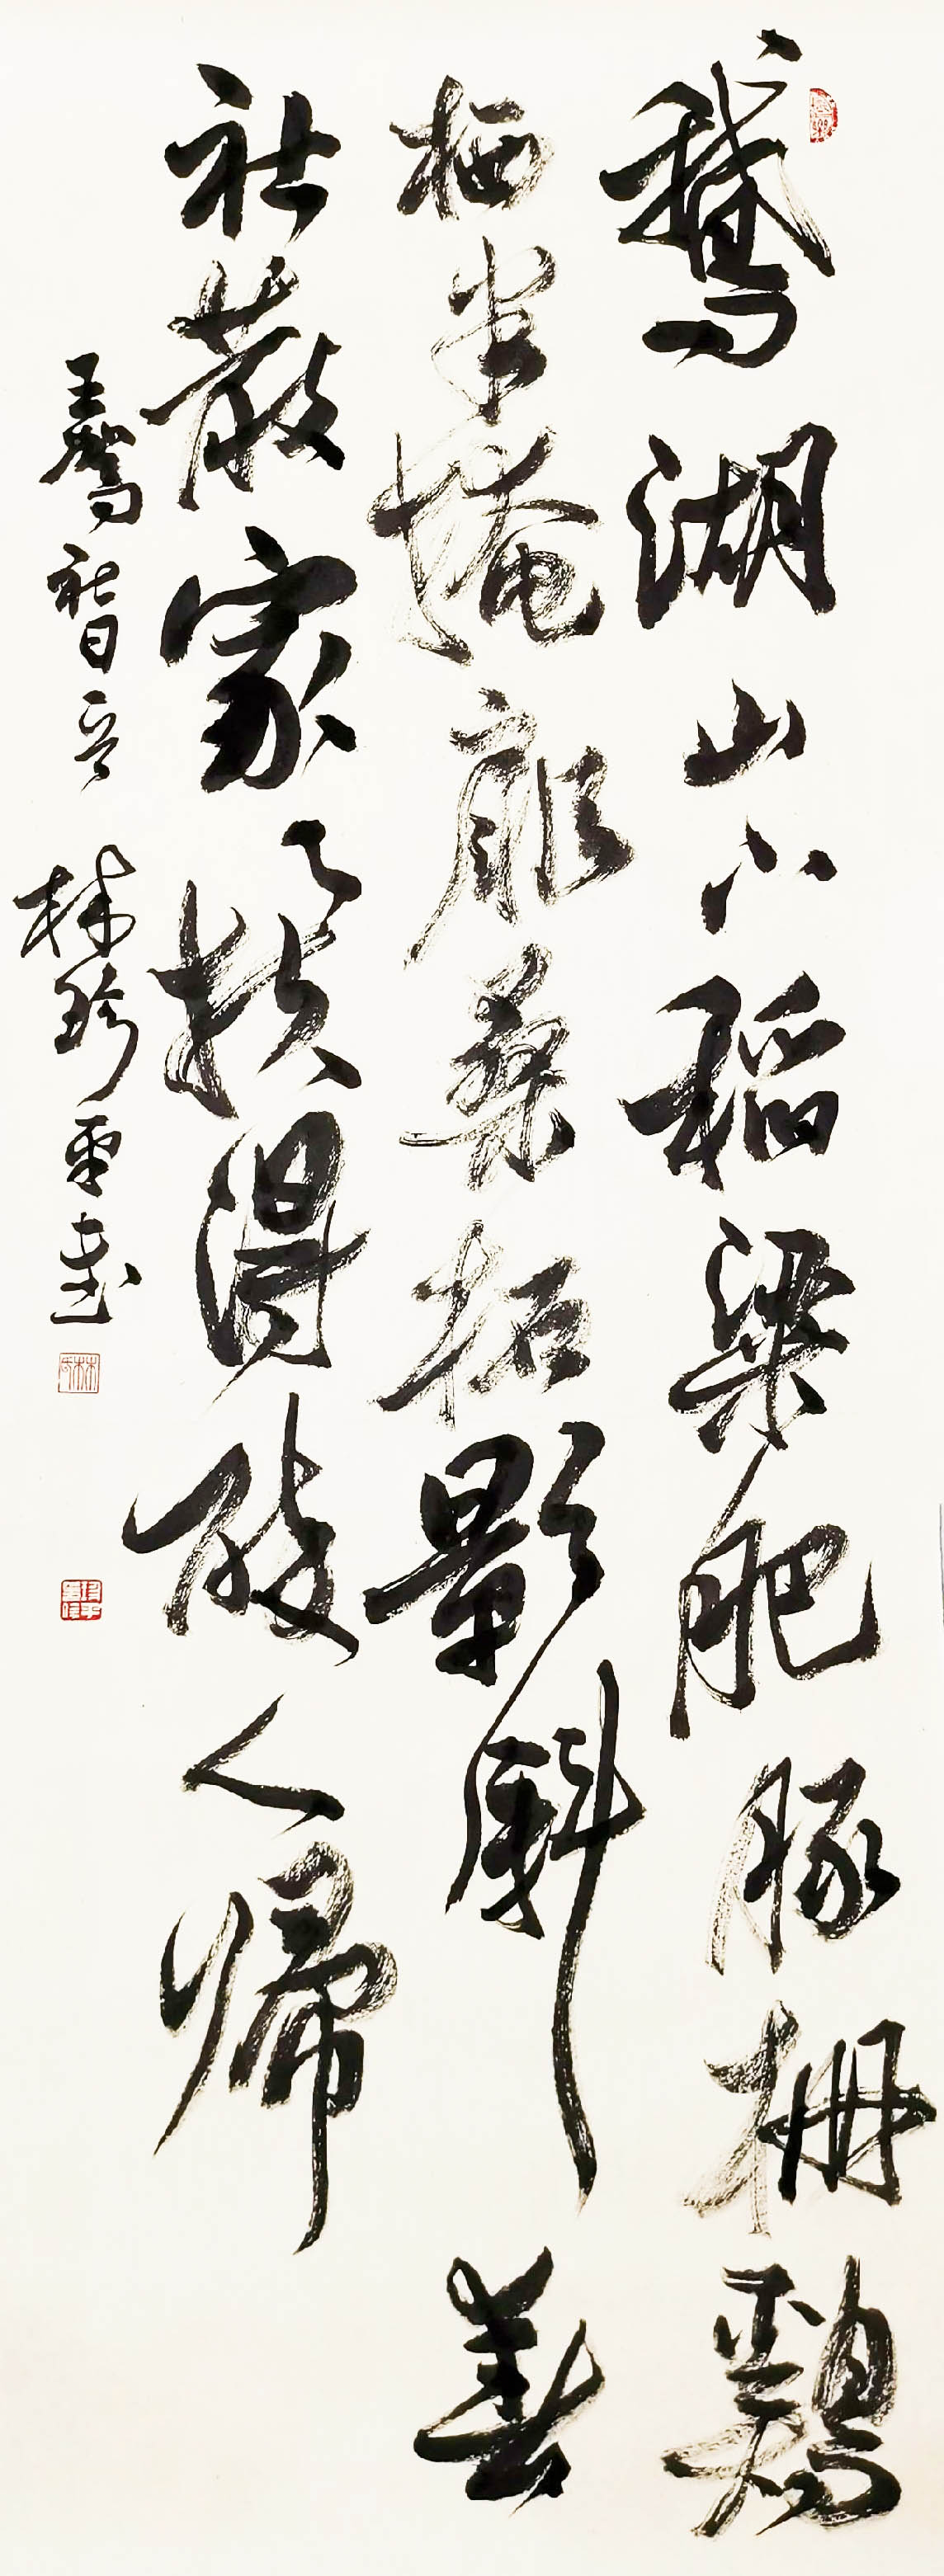 鵝湖山下稻粱肥豚栅鷄
栖半掩扉桑柘影斜春
社散家々扶得醉人歸
王駕社日 林珍
林氏